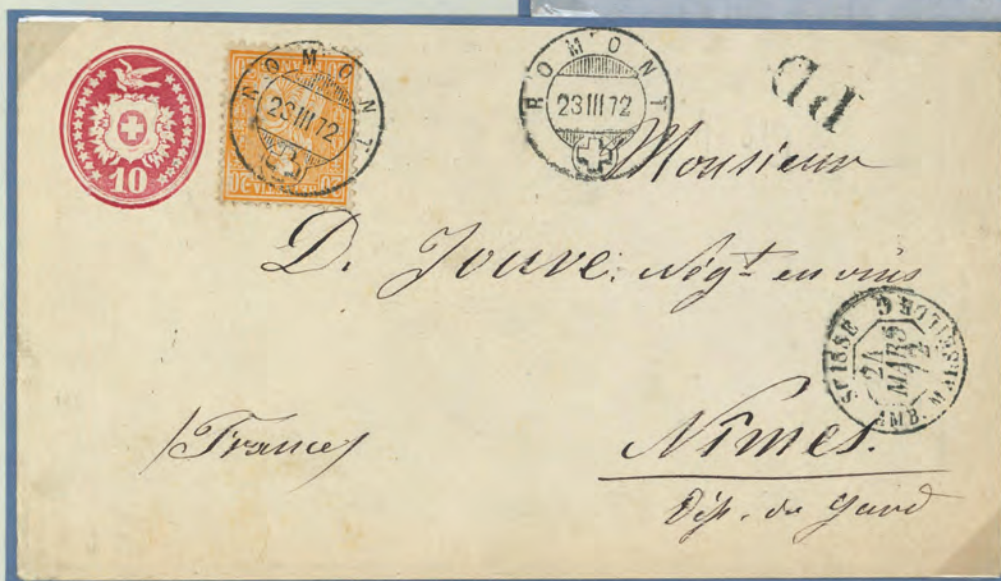 10
ROMONT
23 III 72
ROMONT
23 III 72
PD
Monsieur
D. Jouve. Négt en vins
SUISSE MARSEILLE
24
MARS
72
AMB.
/France/
Nîmes.
Dép. du Gard